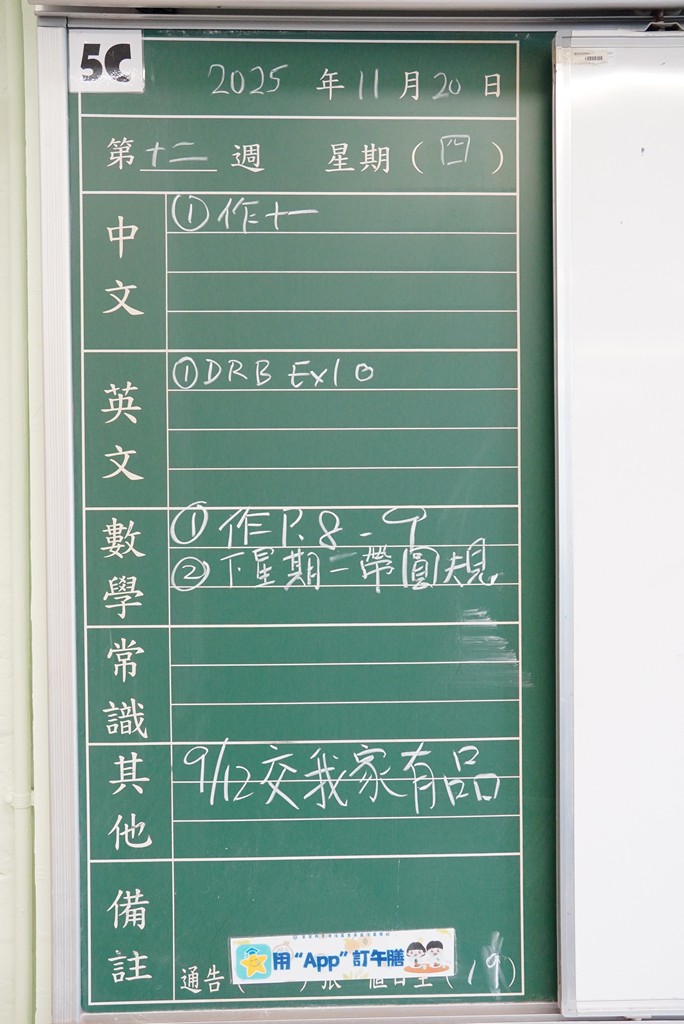 5C
2025 年 11 月 20 日
第 十二 週 星期 ( 四 )
中文
① 作十一
英文
① DRB Ex10
數學
① 作P.8-9
② 下星期一帶圓規
常識
其他
9/12交我家有品
備註
用“App”訂午膳
通告 ( ) 張 值日生 ( 19 )